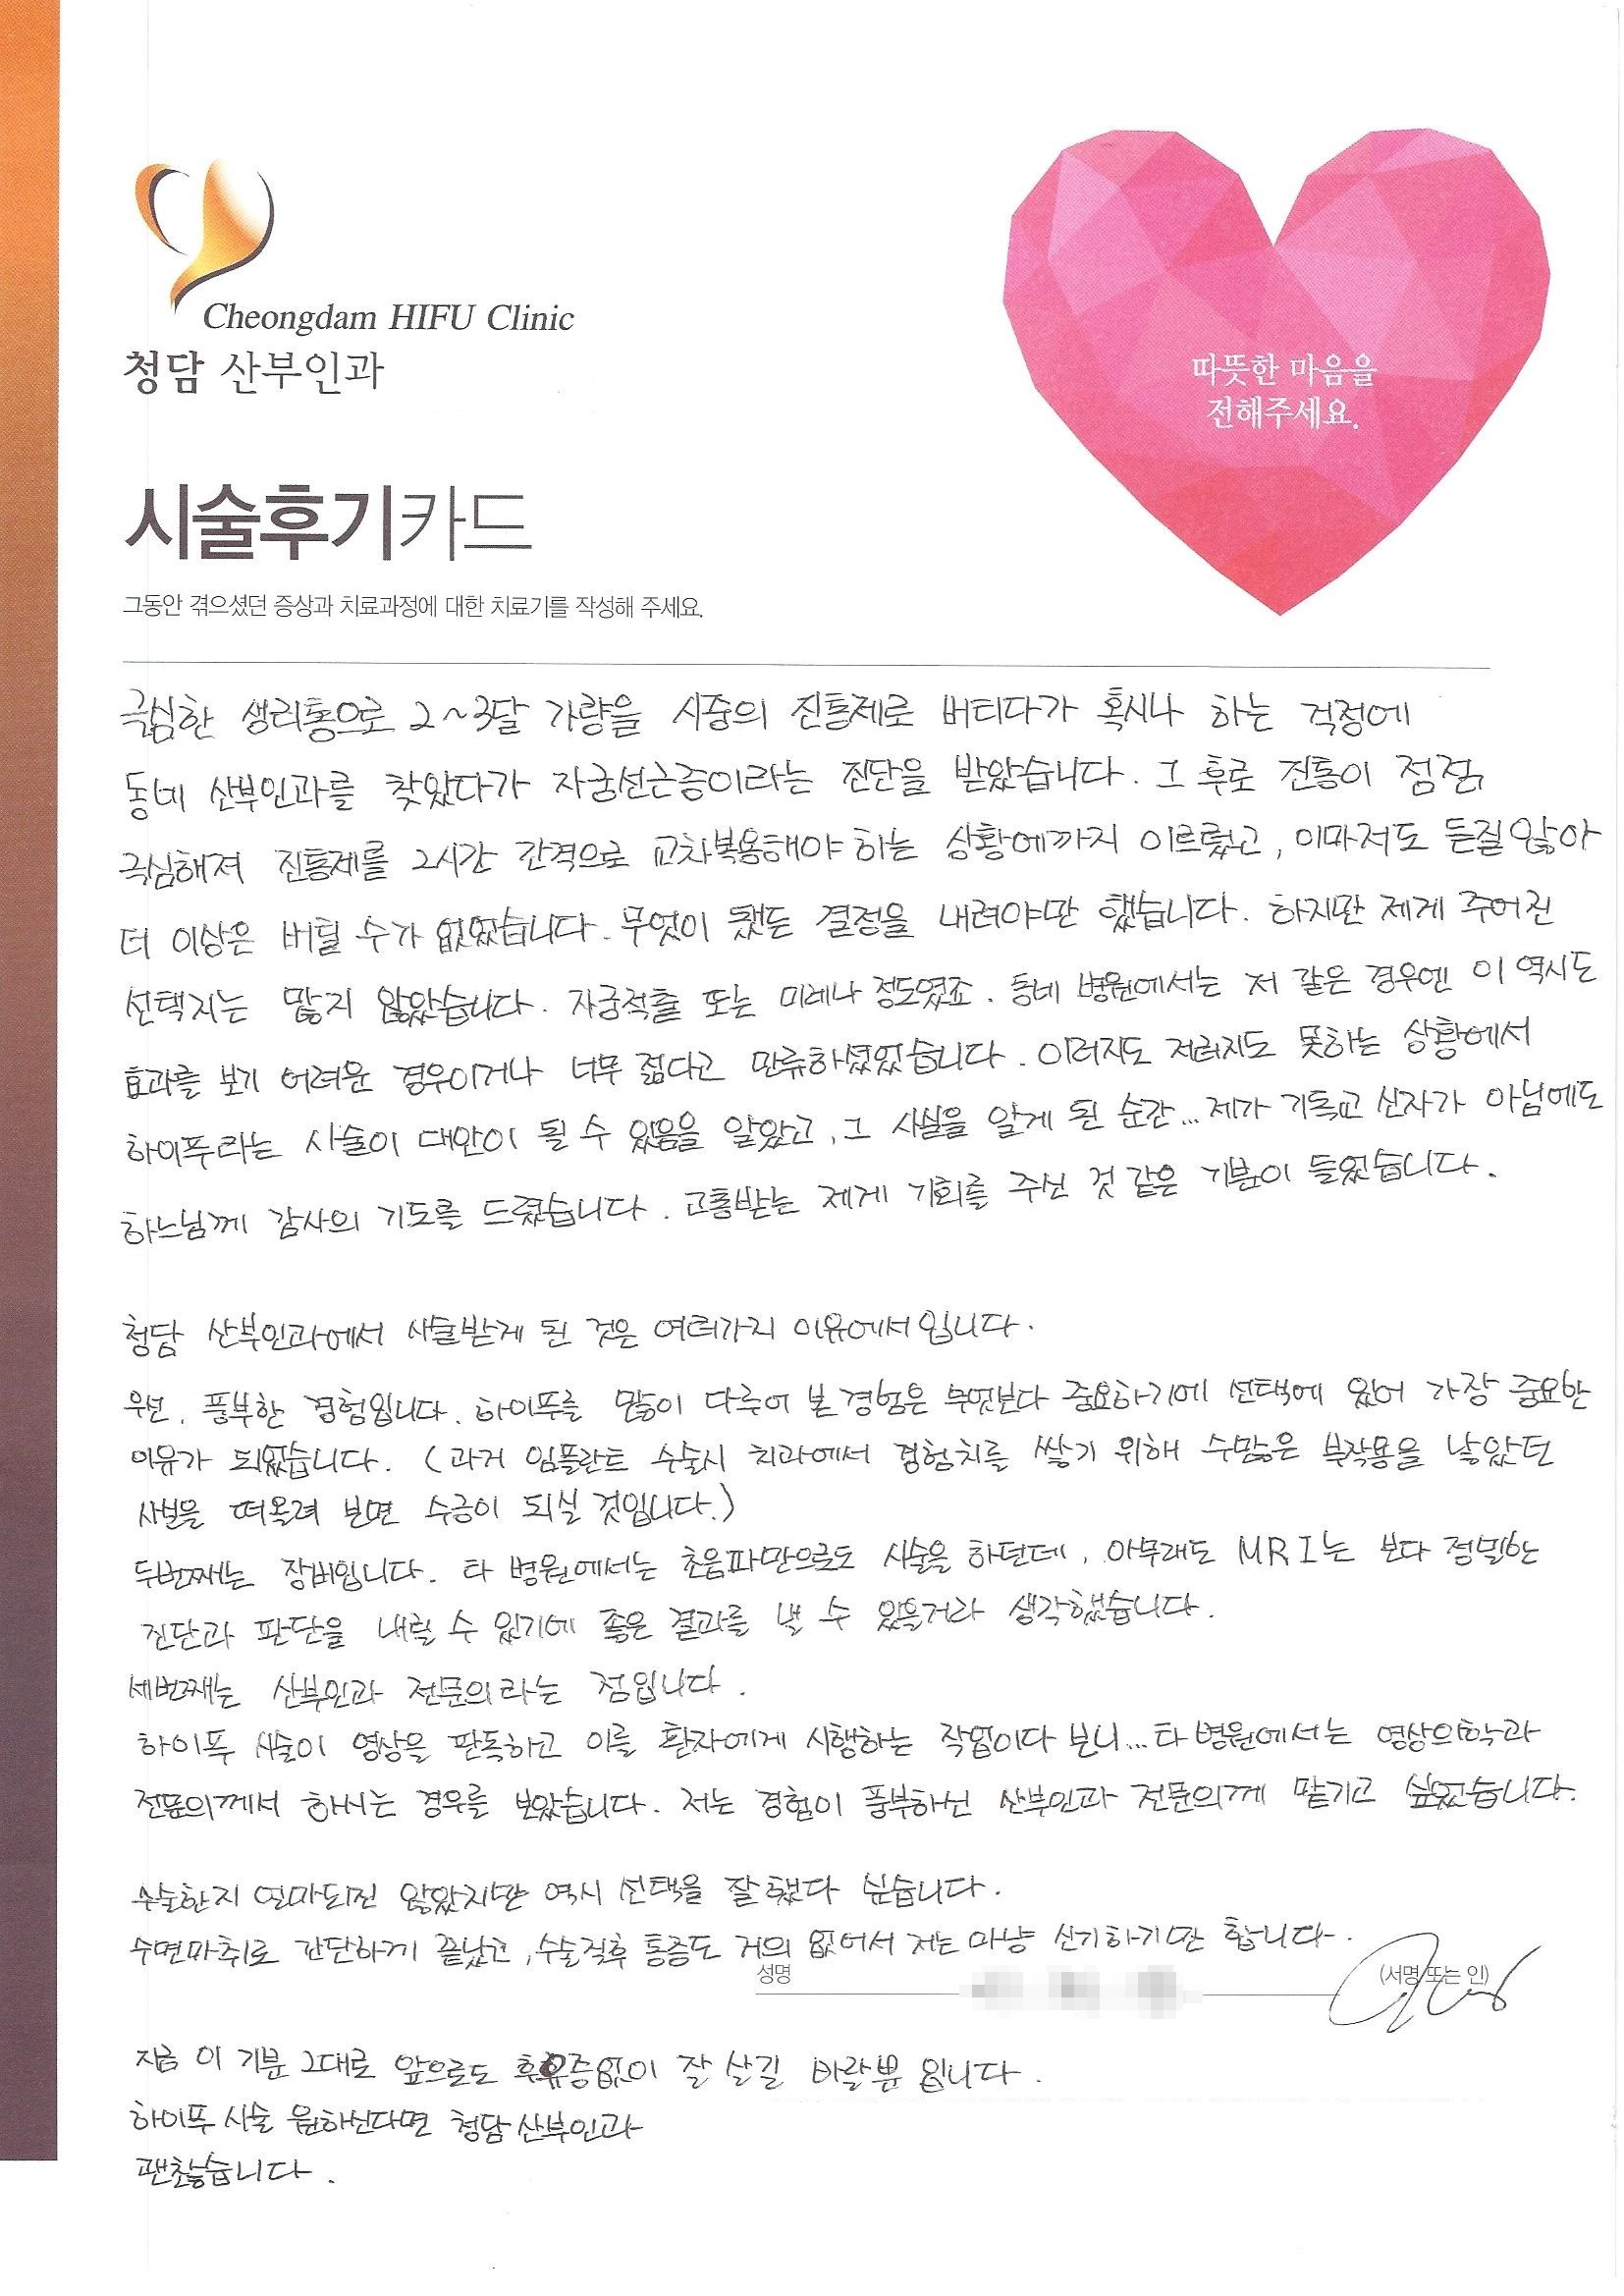 Cheongdam HIFU Clinic
청담 산부인과
따뜻한 마음을
전해주세요.
시술후기카드
그동안 겪으셨던 증상과 치료과정에 대한 치료기를 작성해 주세요.
극심한 생리통으로 2~3달 가량을 시중의 진통제로 버티다가 혹시나 하는 걱정에
동네 산부인과를 찾았다가 자궁선근증이라는 진단을 받았습니다. 그 후로 진통이 점점
극심해져 진통제를 2시간 간격으로 교차복용해야 하는 상황에까지 이르렀고, 이마저도 듣질 않아
더 이상은 버틸 수가 없었습니다. 무엇이 됐든 결정을 내려야만 했습니다. 하지만 제게 주어진
선택지는 많지 않았습니다. 자궁적출 또는 미레나 정도였죠. 동네 병원에서는 저 같은 경우엔 이 역시도
효과를 보기 어려운 경우이거나 너무 젊다고 만류하셨었습니다. 이러지도 저러지도 못하는 상황에서
하이푸라는 시술이 대안이 될 수 있음을 알았고, 그 사실을 알게 된 순간... 제가 기독교 신자가 아님에도
하느님께 감사의 기도를 드렸습니다. 고통받는 제게 기회를 주신 것 같은 기분이 들었습니다.
청담 산부인과에서 시술받게 된 것은 여러가지 이유에서입니다.
우선, 풍부한 경험입니다. 하이푸를 많이 다루어 본 경험은 무엇보다 중요하기에 선택에 있어 가장 중요한
이유가 되었습니다. (과거 임플란트 수술시 치과에서 경험치를 쌓기 위해 수많은 부작용을 낳았던
사실을 떠올려 보면 수긍이 되실 것입니다.)
두번째는 장비입니다. 타 병원에서는 초음파만으로도 시술을 하던데, 아무래도 MRI는 보다 정밀한
진단과 판단을 내릴 수 있기에 좋은 결과를 낼 수 있을거라 생각했습니다.
세번째는 산부인과 전문의라는 점입니다.
하이푸 시술이 영상을 판독하고 이를 환자에게 시행하는 작업이다 보니... 타 병원에서는 영상의학과
전문의께서 하시는 경우를 보았습니다. 저는 경험이 풍부하신 산부인과 전문의께 맡기고 싶었습니다.
수술한지 얼마되진 않았지만 역시 선택을 잘 했다 싶습니다.
수면마취로 간단하게 끝났고, 수술직후 통증도 거의 없어서 저는 마냥 신기하기만 합니다.
성명 (서명 또는 인)
지금 이 기분 그대로 앞으로도 후유증없이 잘 살길 바랄뿐 입니다.
하이푸 시술 원하신다면 청담산부인과
괜찮습니다.